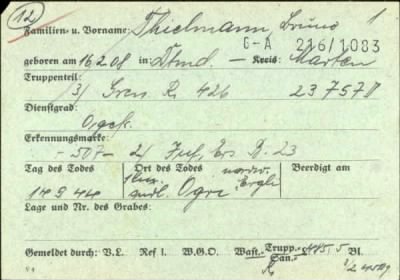 12
Familien- u. Vorname: Thielmann, Bruno 1
G-A 216/1083
geboren am 16.2.08 in: Dtmd. - Kreis: Marten
Truppenteil:
3/ Gren. R. 426 23757
Dienstgrad:
Ogefr.
Erkennungsmarke:
-507- 2/ Inf. Ers. B. 23
Tag des Todes Ort des Todes nordw. Beerdigt am
14.9.44 südl. Ogre Ergli
Lage und Nr. des Grabes:
Gemeldet durch: V.L. Ref I. W.G.O. Wast. Trupp. Bl.
San.